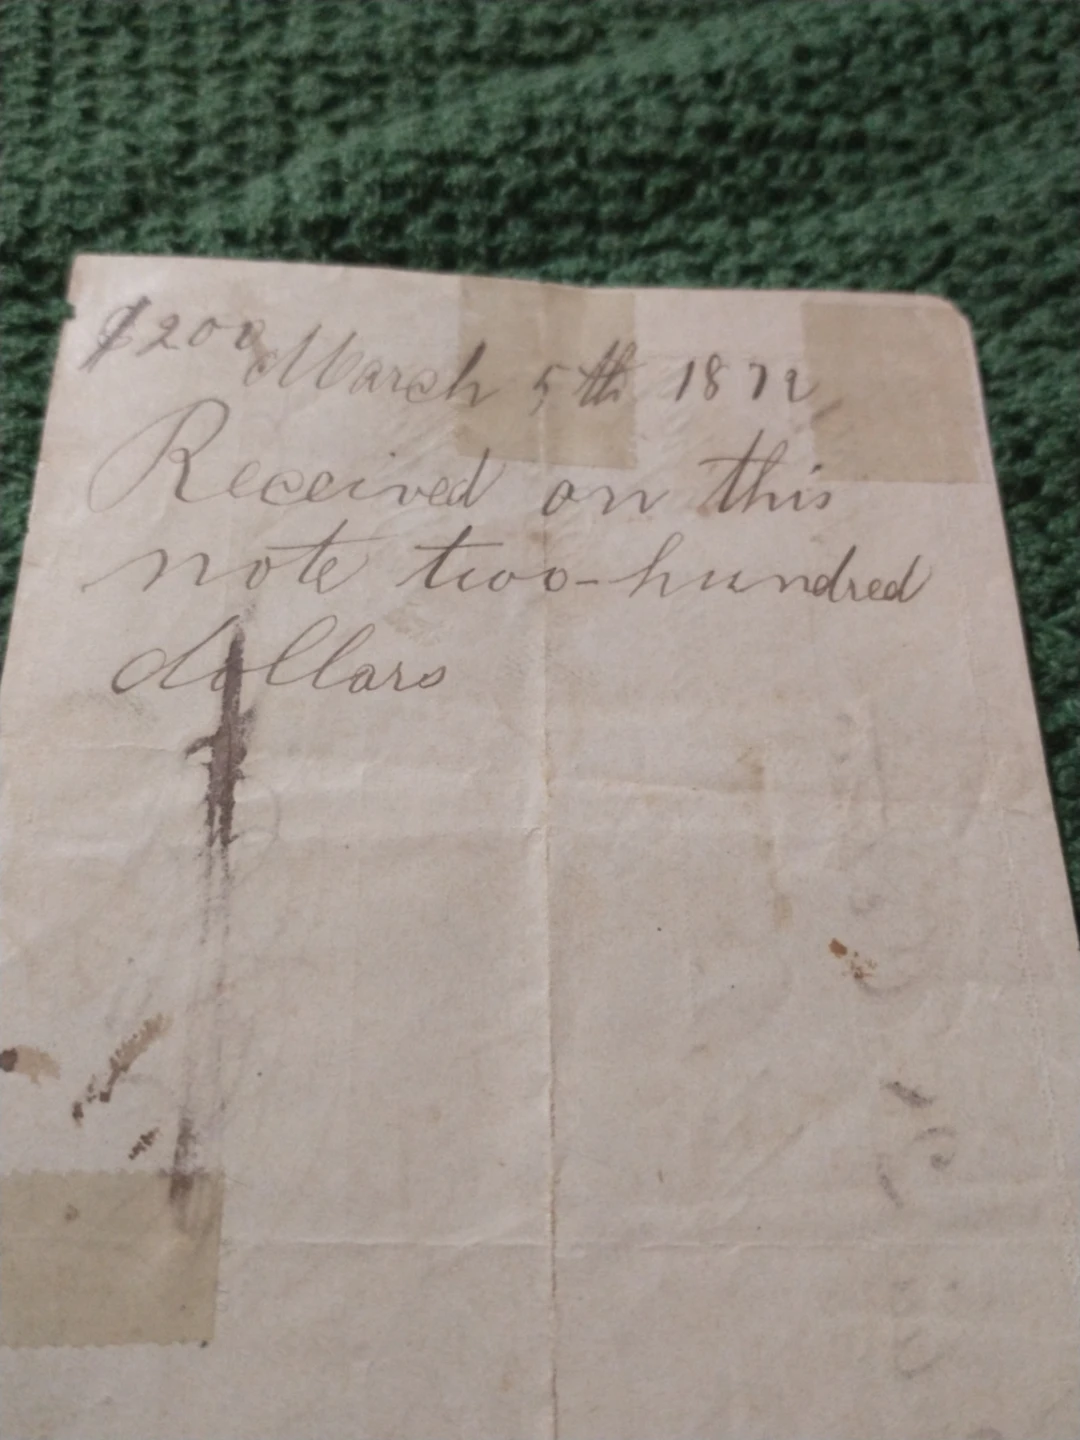 $200 March 5th 1872
Received on this
note two-hundred
dollars